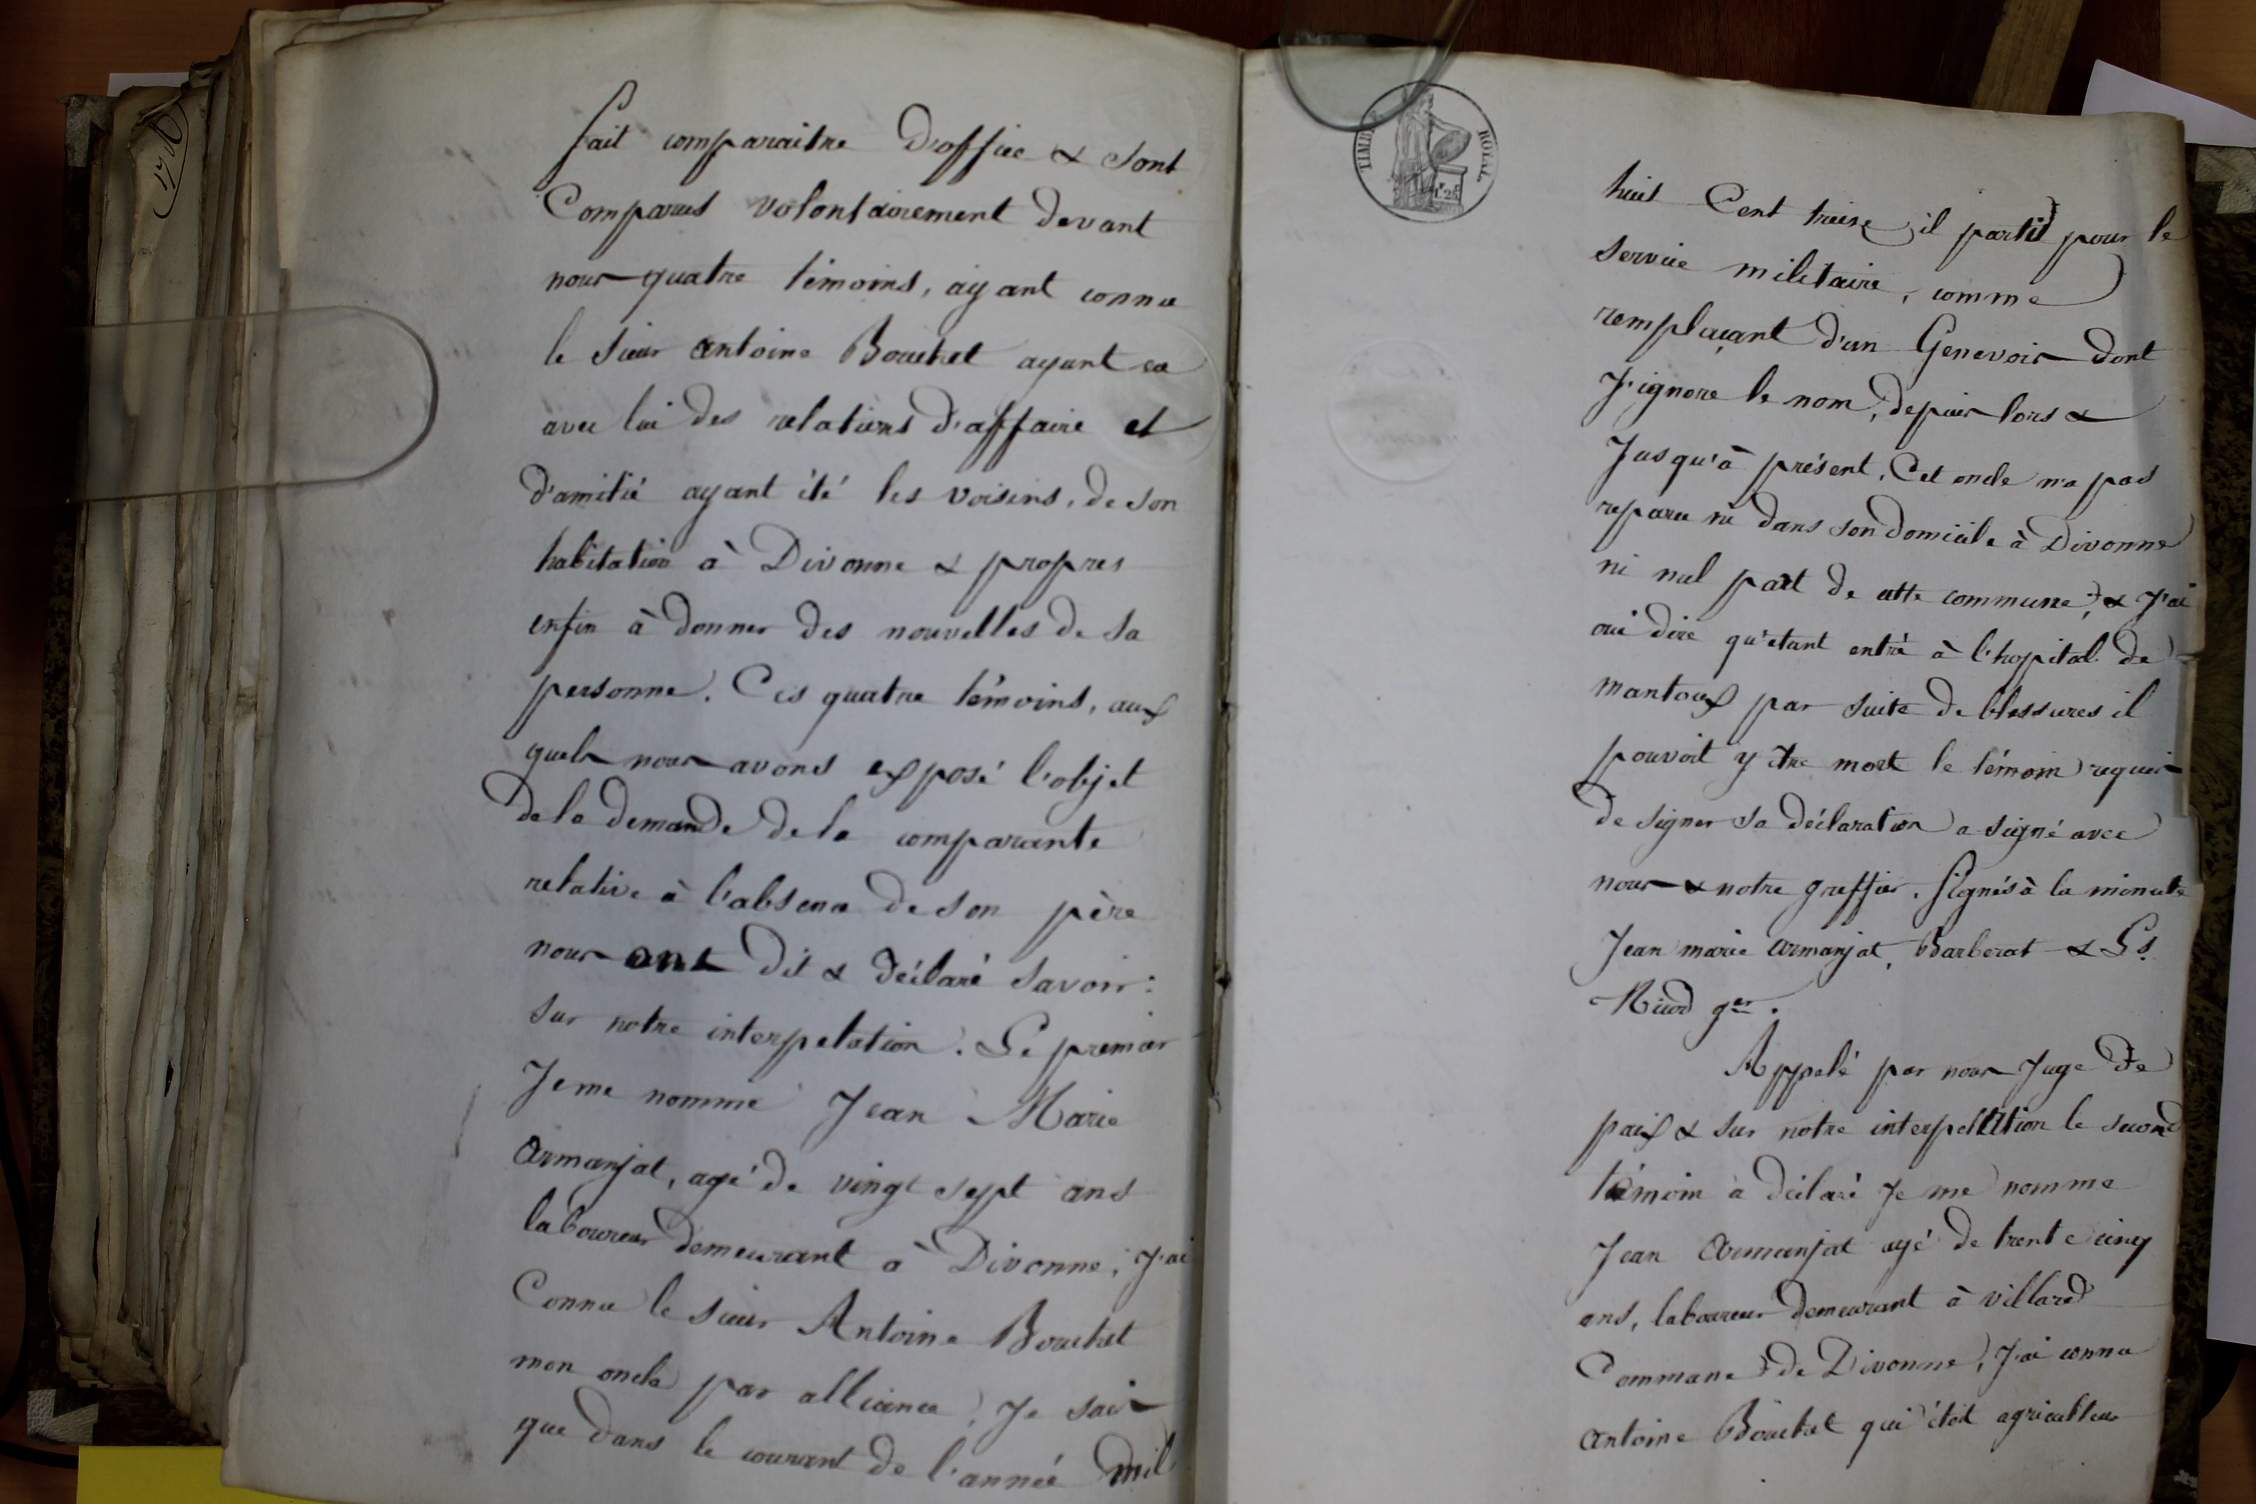 fait comparaitre d'office & sont
Comparus volontairement devant
nous quatre témoins, ayant connu
le sieur antoine Bouchet ayant eu
avec lui des relations d'affaire et
d'amitié ayant été les voisins, de son
habitation à Divonne & propres
enfin à donner des nouvelles de sa
personne. Ces quatre témoins, aux
quels nous avons exposé l'objet
de la demande de la comparante
relative à l'absence de son père
nous ont dit & déclaré savoir:
sur notre interpelation. Le premier
Je me nomme Jean Marie
Armanjat, agé de vingt sept ans
laboureur demeurant à Divonne, J'ai
Connu le sieur Antoine Bouchet
mon oncle par alliance, Je sais
que dans le courant de l'année mil
TIMBRE ROYAL
huit Cent treize, il partit pour le
service militaire, comme
remplaçant d'un Genevois dont
J'ignore le nom, depuis lors &
Jusqu'à présent, Cet oncle n'a pas
reparu ni dans son domicile à Divonne
ni nul part de cette commune; & J'ai
oui dire qu'etant entré à l'hopital de
mantoux par suite de blessures il
pouvoit y être mort le témoin requis
de signer sa déclaration a signé avec
nous & notre greffier. Signés à la minute
Jean marie armanjat, Barberat & Ls.
Nicod ger.
Appelé par nous Juge de
paix & sur notre interpellation le second
témoin a déclaré Je me nomme
Jean Armanjat agé de trente cinq
ans, laboureur demeurant à villard
Commune de Divonne, J'ai connu
antoine Bouchet qui étoit agriculteur